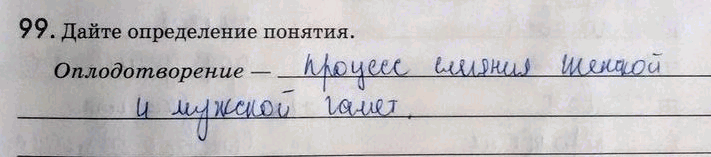 99. Дайте определение понятия.
Оплодотворение — процесс слияния женской
и мужской гамет.